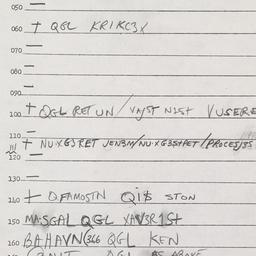 050 —
060 + QGL KRIKC3X
070 —
080
090 —
100 + QGL RET UN / VAJST N1ST VUSERE
110 —
111 + NU·XG3RET JENBM/NU·XG3STRET / PROCES/35
120 —
130 —
140 + O.FAMOSTN QI$ STON
150 MASGAL QGL YAVSR1St
160 BAHAVN(366 QGL KEN
QGL AS ABOVE